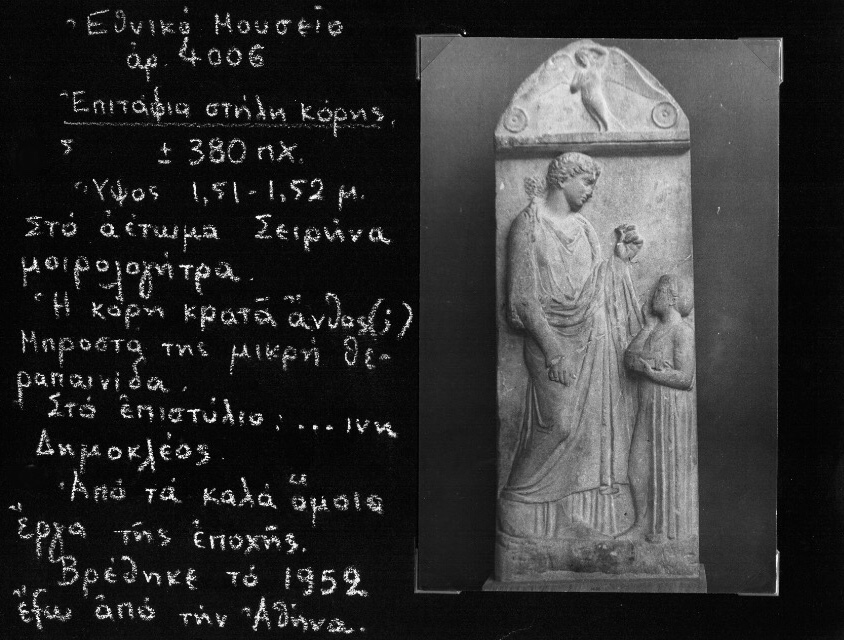 Ἐθνικό Μουσεῖο
ἀρ. 4006
Ἐπιτάφια στήλη κόρης.
± 380 πχ.
Ὕψος 1,51-1,52 μ.
Στό ἀέτωμα Σειρήνα
μοιρολογήτρα.
Ἡ κόρη κρατᾶ ἄνθος(;)
Μπροστά της μικρή θε-
ραπαινίδα.
Στό ἐπιστύλιο: ...ινη
Δημοκλέος.
Ἀπό τά καλά ὅμοια
ἔργα τῆς ἐποχῆς.
Βρέθηκε τό 1952
ἔξω ἀπό τήν Ἀθήνα.